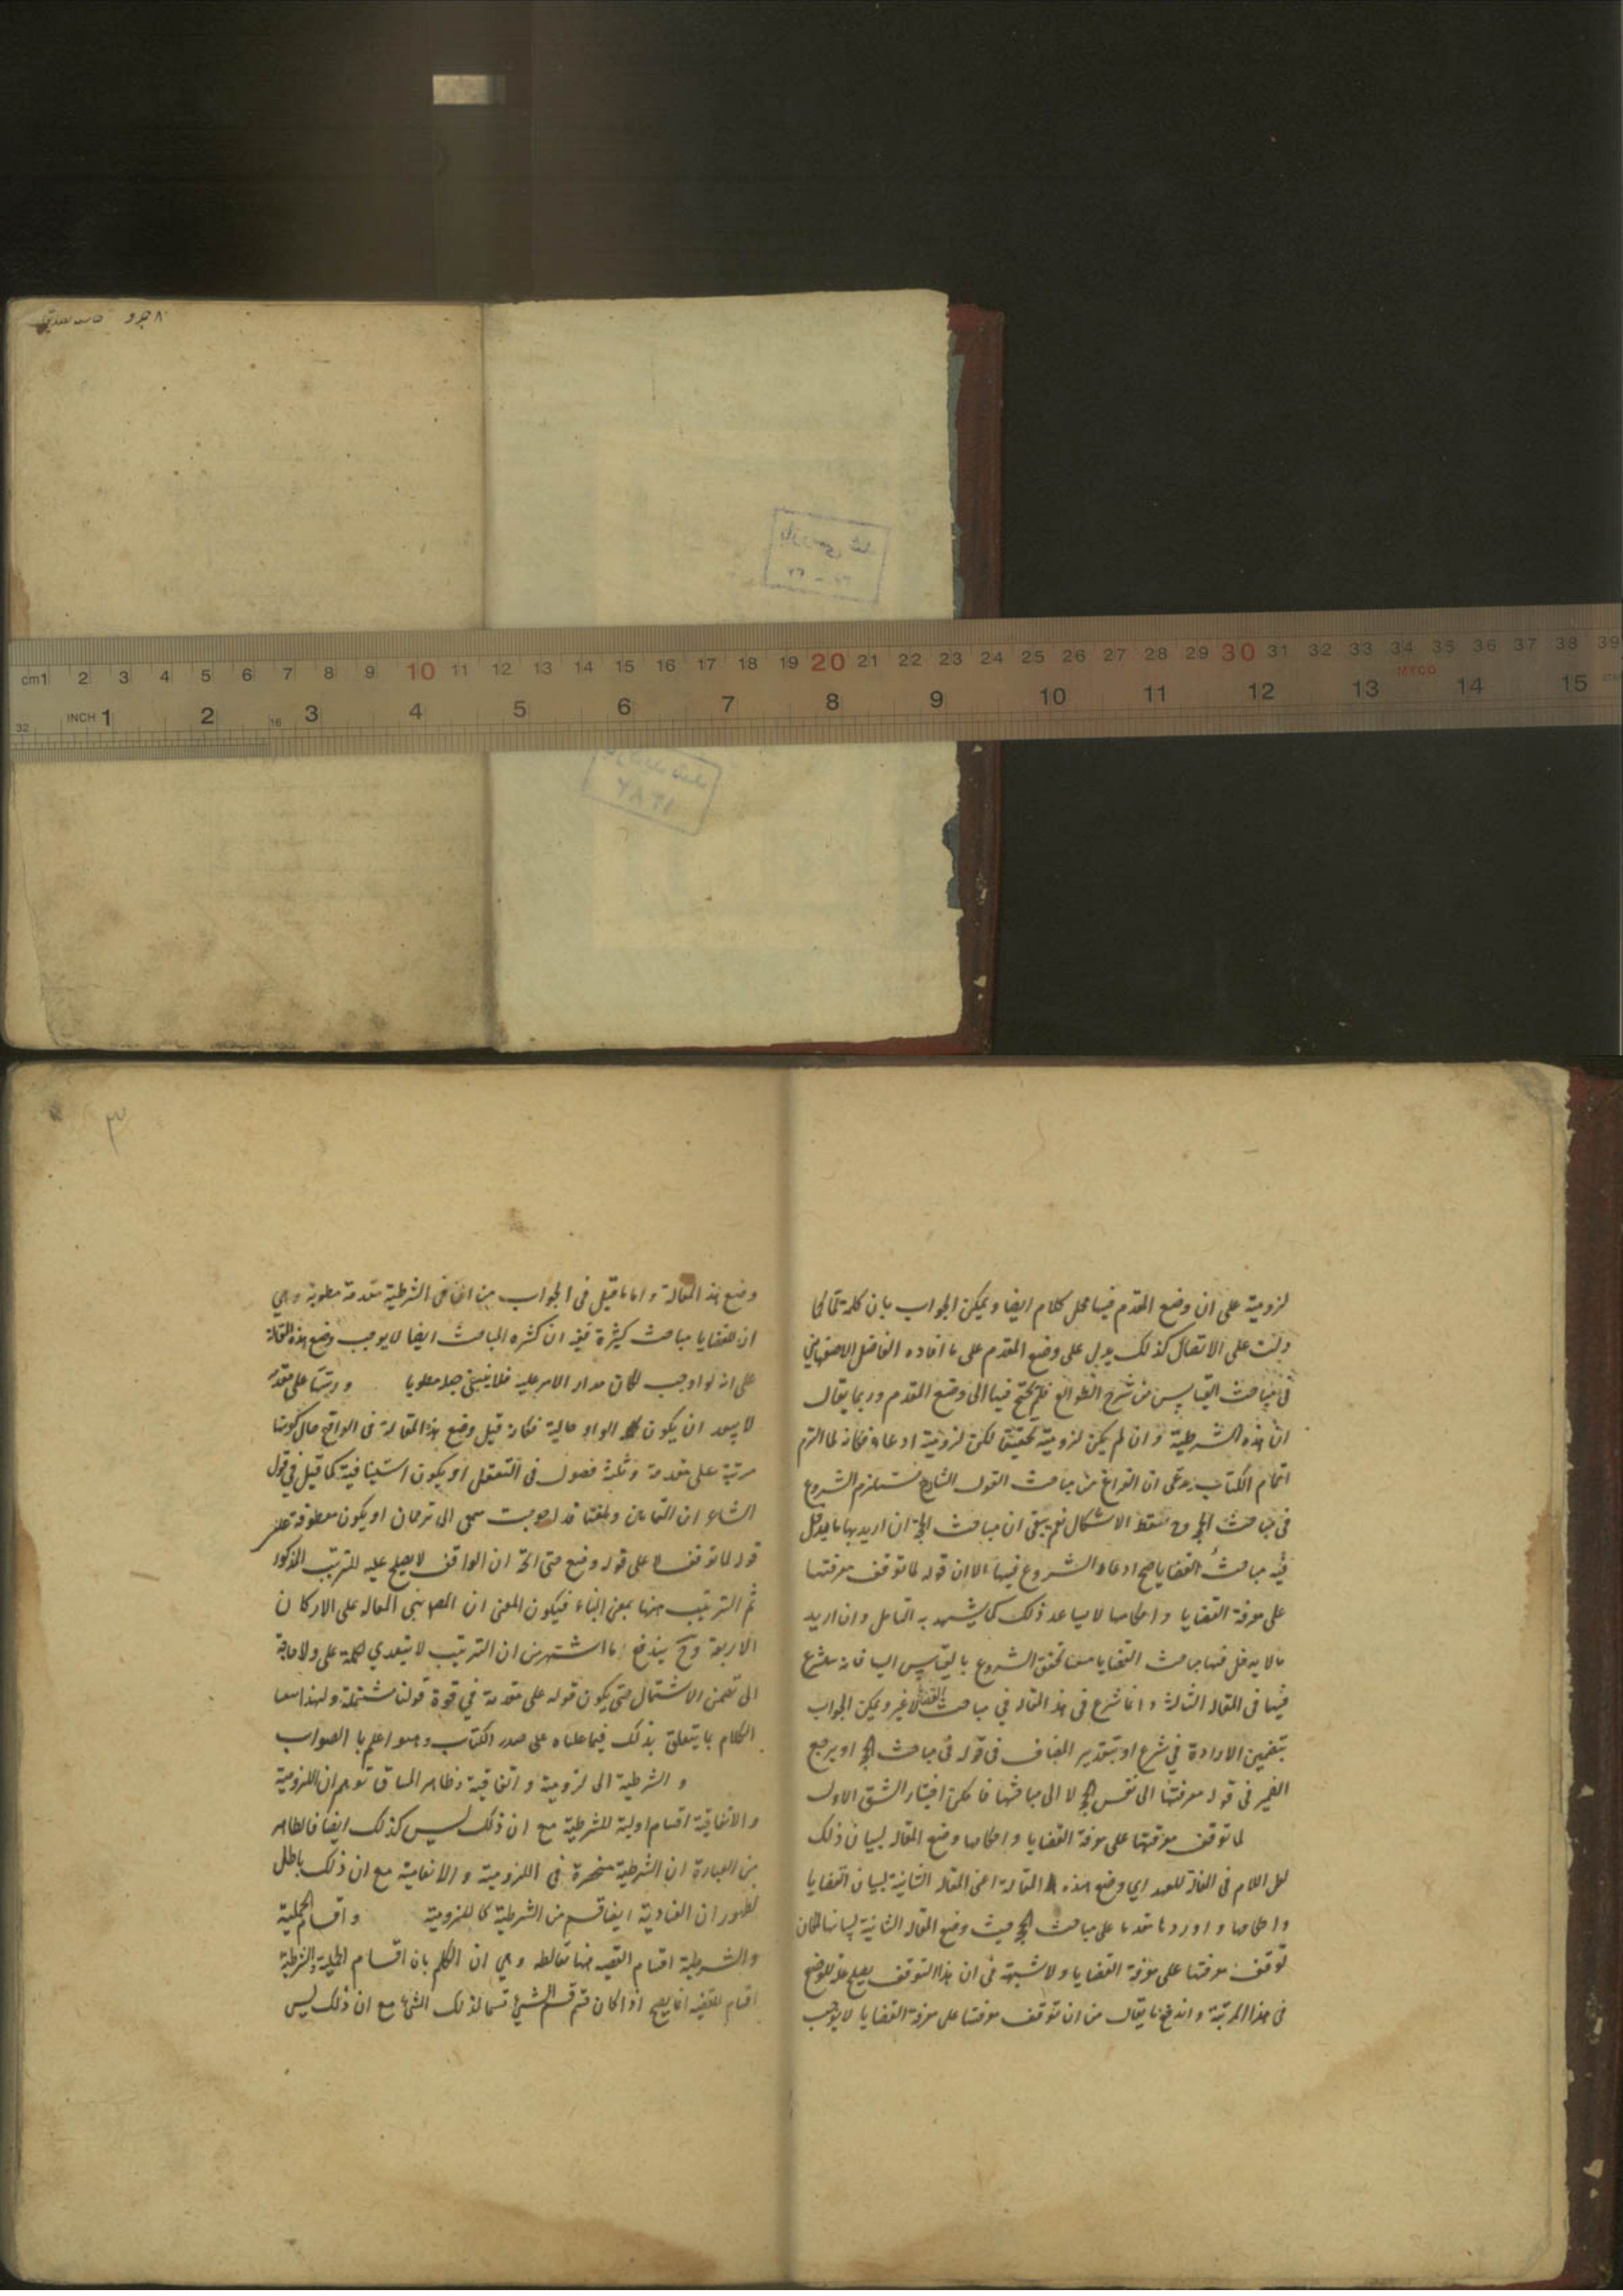 ٨ جزو
بازرسی شد
٣٧ - ٣٦
cm 1 2 3 4 5 6 7 8 9 10 11 12 13 14 15 16 17 18 19 20 21 22 23 24 25 26 27 28 29 30 31 32 33 34 35 36 37 38 39
INCH 1 2 3 4 5 6 7 8 9 10 11 12 13 14 15
32 16
لزومية على ان وضع المقدم فيها محل كلام ايضا ويمكن الجواب بان كلمة لما كما
دلت على الاتصال كذلك يدل على وضع المقدم على ما افاده الفاضل الاصفهاني
في مباحث القياس من شرح الطوالع فلم يحتج فيها الى وضع المقدم وربما يقال
ان هذه الشرطية وان لم يكن لزومية تحقيقا لكن لزومية ادعاء فكانه لما التزم
اتمام الكتاب يدعى ان الفراغ من مباحث القول الشارح تستلزم الشروع
في مباحث الحجة وح سقط الاشكال نعم يبقى ان مباحث الحجة ان اريد بها ما يدخل
فيه مباحث القضايا صح ادعاء الشروع فيها الا ان قوله لما توقف معرفتها
على معرفة القضايا واحكامها لا يساعد ذلك كما يشهد به التامل وان اريد
ما لا يدخل فيها مباحث القضايا منعنا تحقق الشروع بالقياس اليها فانه سيشرع
فيها في المقالة الثالثة وانما شرع في هذه المقالة في مباحث القضايا لا غير ويمكن الجواب
بتضمين الارادة في شرع او بتقدير المضاف في قوله في مباحث الحجة او يرجع
الضمير في قوله معرفتها الى نفس الحجة لا الى مباحثها فامكن اختيار الشق الاول
لما توقف معرفتها على معرفة القضايا واحكامها وضع المقالة لبيان ذلك
لعل اللام في المقالة للعهد اي وضع هذه المقالة اعني المقالة الثانية لبيان القضايا
واحكامها واوردها مقدما على مباحث الحجة حيث وضع المقالة الثانية لبيانها لمكان
توقف معرفتها على معرفة القضايا ولا شبهة في ان هذا التوقف يصلح علة للوضع
في هذا المرتبة واندفع ما يقال من ان توقف معرفتها على معرفة القضايا لا يوجب
٣
وضع هذه المقالة واما ما قيل في الجواب من ان في الشرطية مقدمة مطوية وهي
ان للقضايا مباحث كثيرة ففيه ان كثرة المباحث ايضا لا يوجب وضع هذه المقالة
على انه لو اوجب لكان مدار الامر عليه فلا ينبغي جعله مطويا ورتبتها على مقدمة
لا يبعد ان يكون الواو حالية فكانه قيل وضع هذه المقالة في الواقع حال كونها
مرتبة على مقدمة وثلثة فصول في التعقل او يكون استينافية كما قيل في قول
الشاعر ان الثمانين وبلغتها قد احوجت سمعى الى ترجمان او يكون معطوفة على
قوله لما توقف لا على قوله وضع حتى اتجه ان الواقف لا يصلح عليه للترتيب المذكور
ثم الترتيب ههنا بمعنى البناء فيكون المعنى ان المصنف بنى المقالة على الاركان
الاربعة وح يندفع ما اشتهر من ان الترتيب لا يتعدى بكلمة على ولا حاجة
الى تضمين الاشتمال حتى يكون قوله على مقدمة في قوة قولنا مشتملة ولهذا سمعنا
الكلام ما يتعلق بذلك فيما علقناه على صدر الكتاب وهو اعلم بالصواب
والشرطية الى لزومية واتفاقية وظاهر المساق توهم ان اللزومية
والاتفاقية اقسام اولية للشرطية مع ان ذلك ليس كذلك ايضا فالظاهر
من العبارة ان الشرطية منحصرة في اللزومية والاتفاقية مع ان ذلك باطل
لظهور ان العنادية ايضا قسم من الشرطية كاللزومية واقسام الحملية
والشرطية اقسام القضية ههنا مغالطة وهي ان الكلم بان اقسام الحملية والشرطية
اقسام للقضية انما يصح اذا كان قسم قسم الشئ قسما لذلك الشئ مع ان ذلك ليس